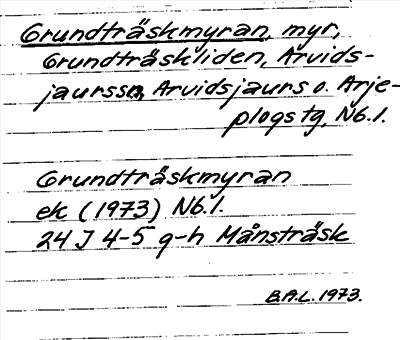 Grundträskmyran, myr,
Grundträskliden, Arvids-
jaurssn, Arvidsjaurs o. Arje-
plogs tg, Nb.l.
Grundträskmyran
ek (1973) Nb.l.
24 J 4-5 g-h Månsträsk
B.A.L. 1973.